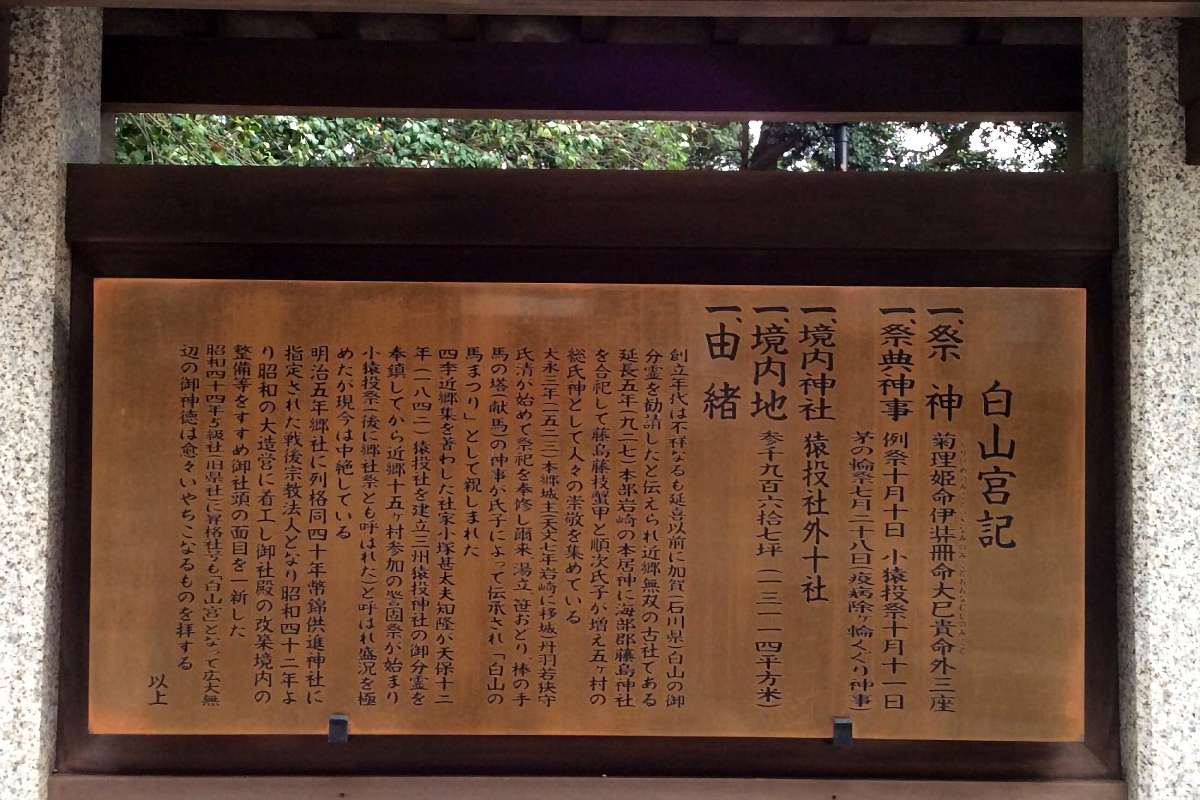 白山宮記
一、祭神 菊理姫命伊弉冊命大己貴命外三座
一、祭典神事 例祭十月十日 小猿投祭十月十一日
茅の輪祭七月二十八日(疫病除ヶ輪くぐり神事)
一、境内神社 猿投社外十社
一、境内地 参千九百六拾七坪(一三一一四平方米)
一、由緒
創立年代は不祥なるも延喜以前に加賀(石川県)白山の御
分霊を勧請したと伝えられ近郷無双の古社である
延長五年(九二七)本部岩崎の本居神に海部郡藤島神社
を合祀して藤島藤枝蟹甲と順次氏子が増え五ヶ村の
総氏神として人々の崇敬を集めている
大永三年(一五二三)本郷城主(天文七年岩崎に移城)丹羽若狭守
氏清が始めて祭祀を奉修し爾来、湯立、笹おどり、棒の手
馬の塔(献馬の神事)が氏子によって伝承され「白山の
馬まつり」として親しまれた
四季近郷集を著わした社家小塚甚太夫知隆が天保十二
年(一八四二)猿投社を建立三州猿投神社の御分霊を
奉鎮してから近郷十五ヶ村参加の警固祭が始まり
小猿投祭(後に郷社祭とも呼ばれた)と呼ばれ盛況を極
めたが現今は中絶している
明治五年郷社に列格同四十年幣錦供進神社に
指定された戦後宗教法人となり昭和四十二年よ
り昭和の大造営に着工し御社殿の改築境内の
整備等をすすめ御社頭の面目を一新した
昭和四十四年5級社(旧県社)に昇格社号も「白山宮」となって広大無
辺の御神徳は愈々いやちこなるものを拝する
以上